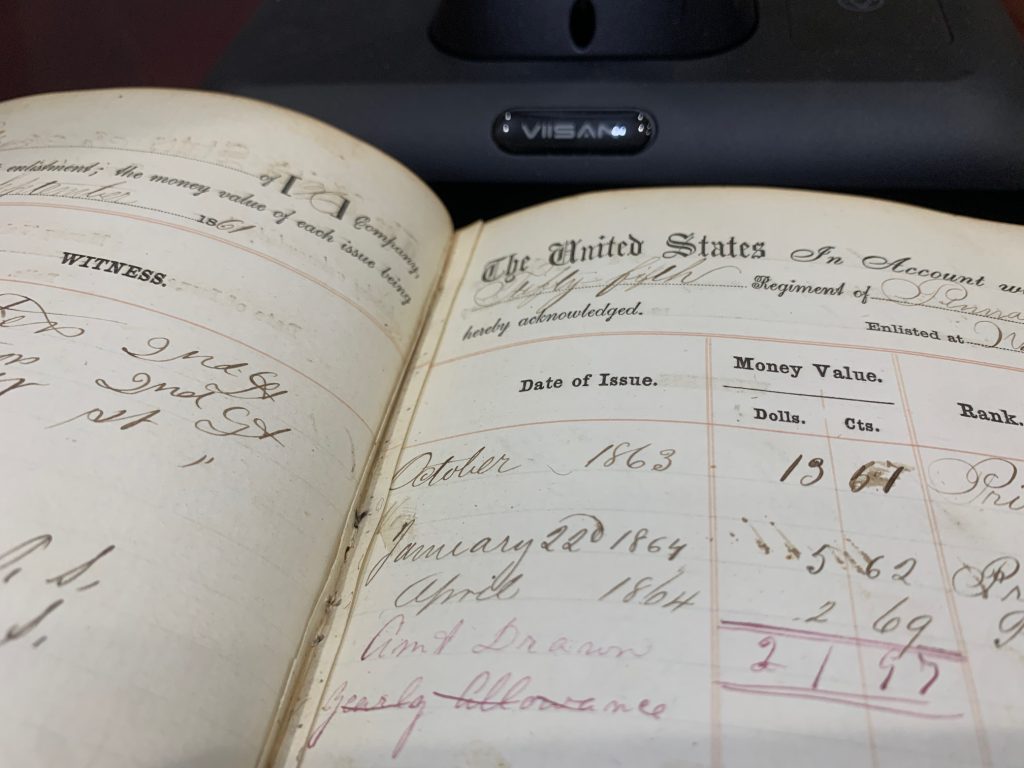 VIISAN
of Company,
enlistment; the money value of each issue being
1861.
WITNESS.
2nd Lt
2nd Lt
st
"
S.
S.
The United States In Account
Fifty fifth Regiment of
hereby acknowledged. Enlisted at
Date of Issue. Money Value. Rank.
Dolls. Cts.
October 1863 13 67
January 22d 1864 5 62
April 1864 2 69
Amt Drawn 21 97
Yearly Allowance